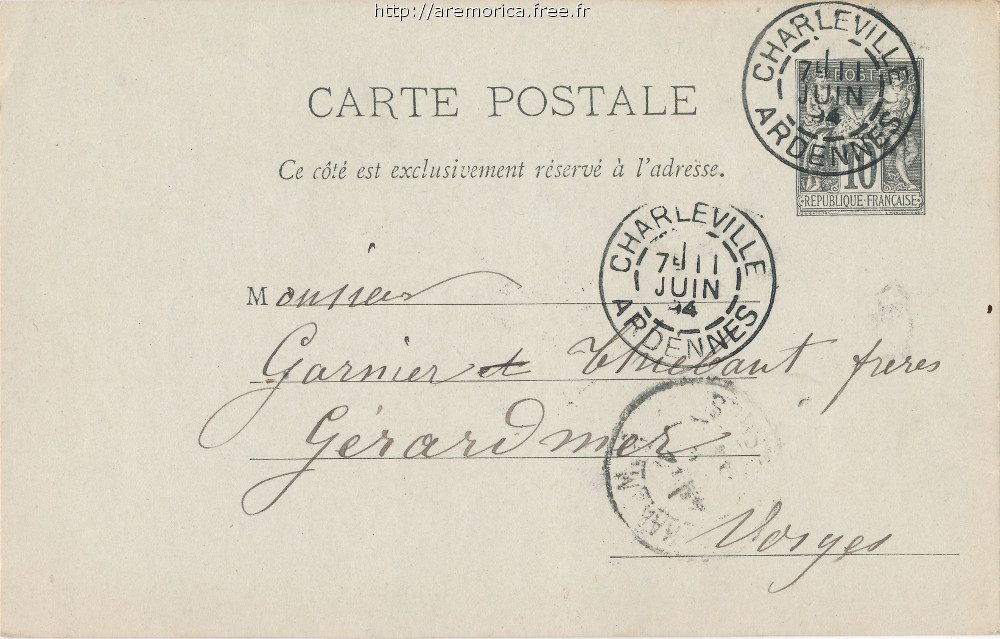 http://aremorica.free.fr
CHARLEVILLE
7E 11
JUIN
94
ARDENNES
POSTE
10
REPUBLIQUE FRANÇAISE
CARTE POSTALE
Ce côté est exclusivement réservé à l'adresse.
CHARLEVILLE
7E 11
JUIN
94
ARDENNES
Monsieur
Garnier & Thiébaut frères
Gérardmer
Vosges